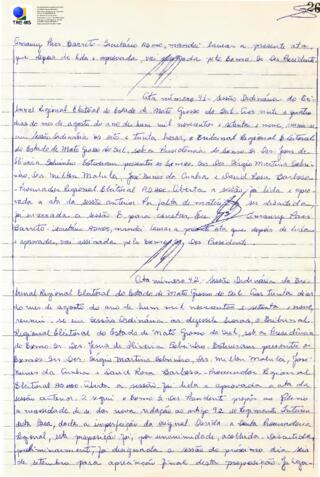 TRE-MS
26
Amaury Paes Barreto - Secretário ad hoc, mandei lavrar a presente ata
que depois de lida e aprovada, vai assinada pelo Exmo. Sr. Des. Presidente.
Ata número 41 - Sessão Ordinária do Tri-
bunal Regional Eleitoral do Estado de Mato Grosso do Sul. Aos vinte e quatro
dias do mês de agosto do ano de hum mil novecentos e setenta e nove, reuniu-se
em sessão ordinária às sete e trinta horas, o Tribunal Regional Eleitoral
do Estado de Mato Grosso do Sul, sob a Presidência do Exmo. Sr. Des. Jesus de
Oliveira Sobrinho. Estiveram presentes os Exmos. Srs. Des. Sérgio Martins Sobri-
nho, Drs. Milton Malulei, José Nunes da Cunha e David Rosa Barbosa
- Procurador Regional Eleitoral ad hoc. Aberta a sessão, foi lida e apro-
vada a ata da sessão anterior. Por falta de matéria a ser debatida
foi encerrada a sessão. E, para constar, Eu Amaury Paes
Barreto - Secretário ad hoc, mandei lavrar a presente ata que depois de lida
e aprovada, vai assinada pelo Exmo. Sr. Des. Presidente.
Ata número 42 - Sessão Ordinária do Tri-
bunal Regional Eleitoral do Estado de Mato Grosso do Sul. Aos trinta dias
do mês de agosto do ano de hum mil novecentos e setenta e nove,
reuniu-se em sessão ordinária, às dezessete horas, o Tribunal
Regional Eleitoral do Estado de Mato Grosso do Sul, sob a Presidência
do Exmo. Sr. Des. Jesus de Oliveira Sobrinho. Estiveram presentes os
Exmos. Srs. Des. Sérgio Martins Sobrinho, Drs. Milton Malulei, José
Nunes da Cunha e David Rosa Barbosa - Procurador Regional
Eleitoral ad hoc. Aberta a sessão foi lida e aprovada a ata da
sessão anterior. A seguir o Exmo. Sr. Des. Presidente propôs ao Plenário
a necessidade de se dar nova redação ao artigo 42 do Regimento Interno
desta Casa, dada a imperfeição da original. Ouvida a douta Procuradoria
Regional, esta proposição foi, por unanimidade, acolhida. Discutida
preliminarmente, foi designada a sessão do próximo dia seis
de setembro para apreciação final desta proposição.